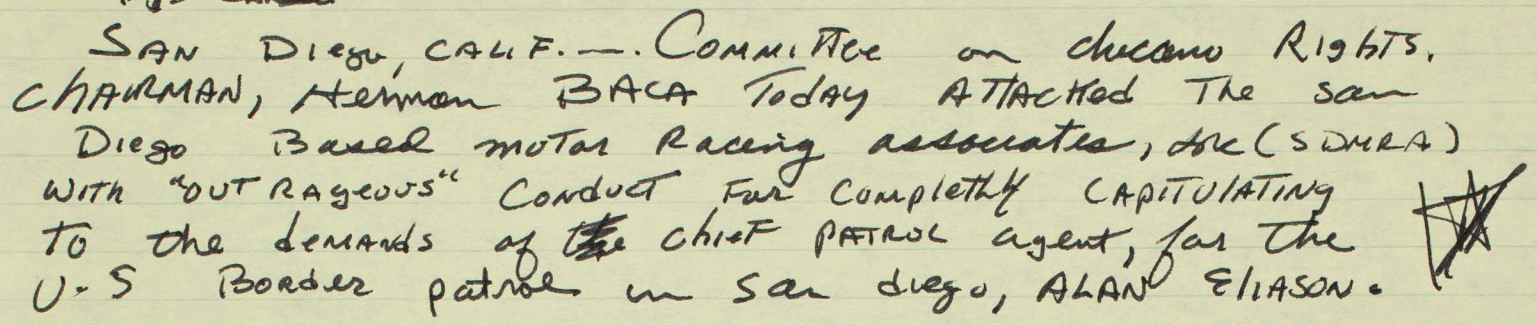 SAN Diego, CALIF. —. Committee on chicano Rights.
CHAIRMAN, Herman BACA Today ATTACKed The San
Diego Based motor Racing associates, inc (SDMRA)
WITH "OUTRAgeous" Conduct For Completly CAPITULATING
To the demands of chief PATROL agent, for the
U.S Border patrol in San diego, ALAN ElIASON.